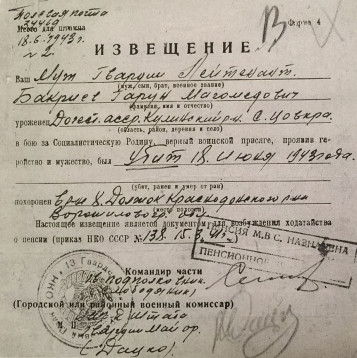 Полевая почта
24460
Место для штампа
18.6.1943 г.
№ 2
Форма 4
ИЗВЕЩЕНИЕ
Ваш Муж Гвардии Лейтенант
(муж, сын, брат, военное звание)
Бакриев Гарун Магомедович
(фамилия, имя и отчество)
уроженец Дагест. асср. Кулинский рн. С. Цовкра.
(область, район, деревня и село)
в бою за Социалистическую Родину, верный воинской присяге, проявив ге-
ройство и мужество, был убит 18. июня 1943 года.
(убит, ранен и умер от ран)
похоронен Краснодонского р-на
Настоящее извещение является документом для возбуждения ходатайства
о пенсии (приказ НКО СССР № 138. 15.3.41 г.)
ПЕНСИЯ М.В.С. НАЗНАЧЕНА
ПЕНСИОННОЕ
Командир части
гв. подполковник
(Городской или районный военный комиссар)
Нач. Штаба
гвардии майор
(Дацко)